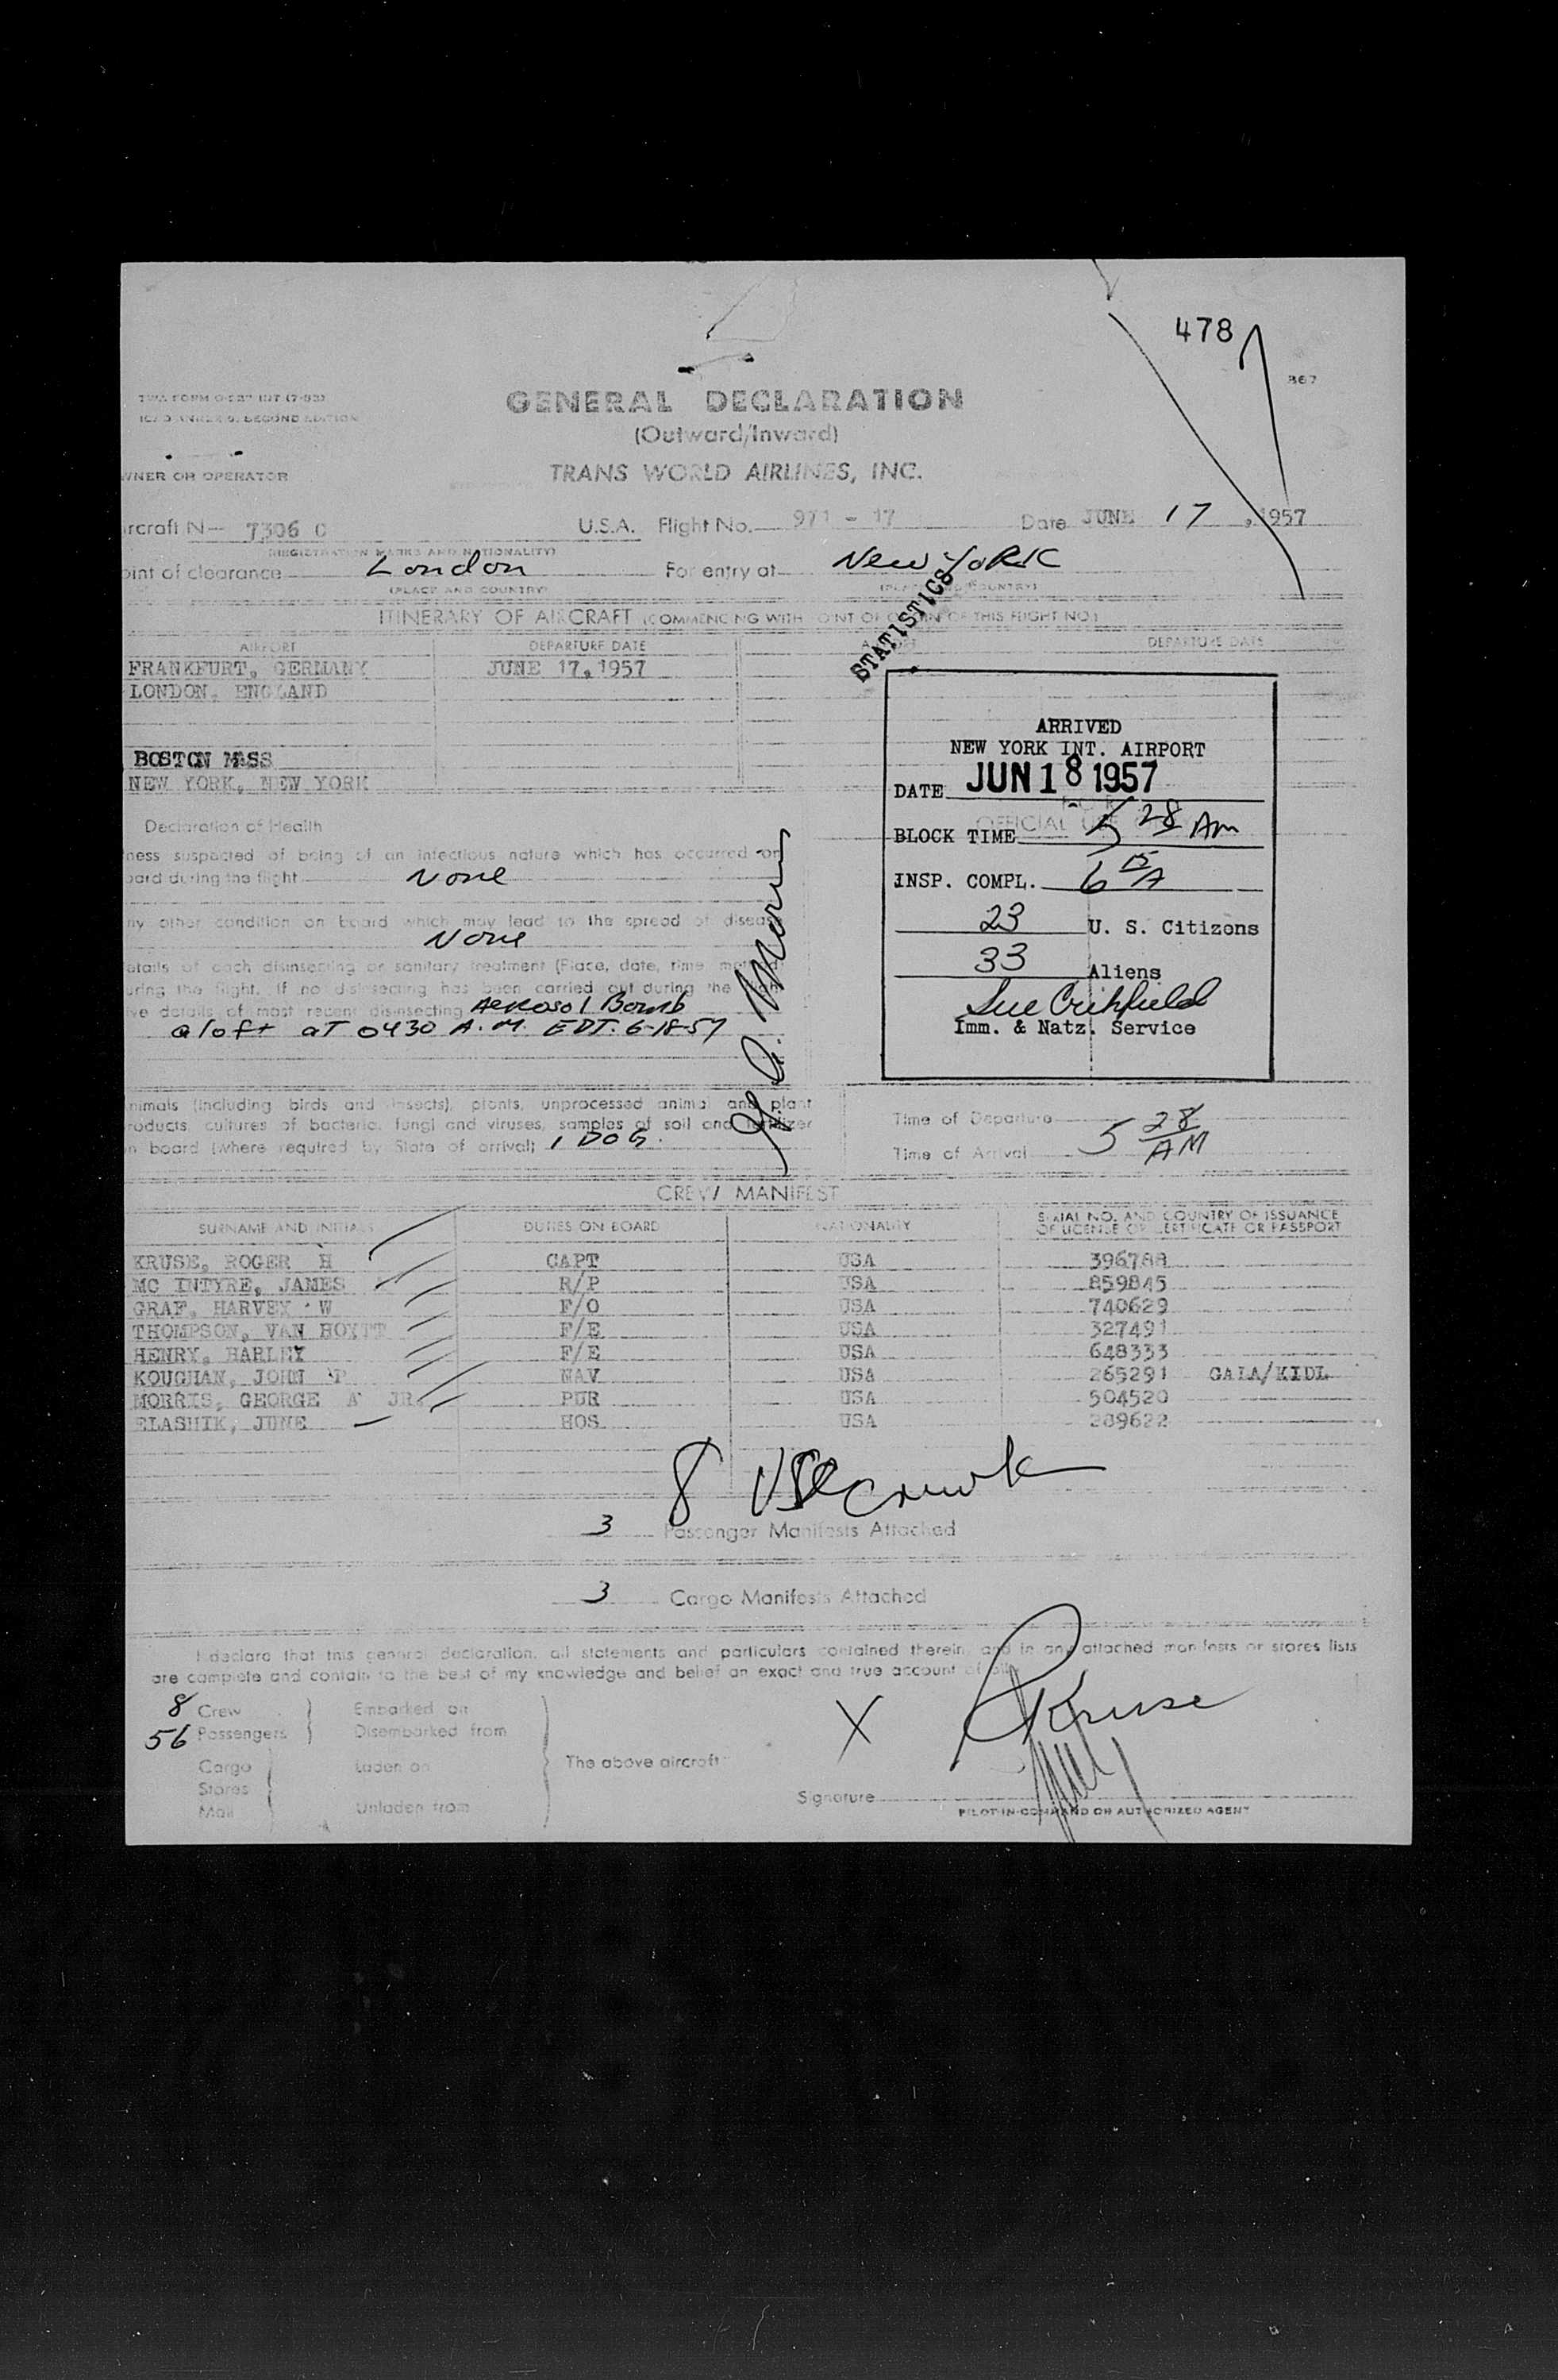 478
367
GENERAL DECLARATION
(Outward/Inward)
WNER OR OPERATOR
TRANS WORLD AIRLINES, INC.
ircraft N— 7306 C U.S.A. Flight No. 971 - 17 Date JUNE 17, 1957
(REGISTRATION MARKS AND NATIONALITY)
oint of clearance London For entry at New York
(PLACE AND COUNTRY) (PLACE AND COUNTRY)
STATISTICS
ITINERARY OF AIRCRAFT (COMMENCING WITH POINT OF ORIGIN OF THIS FLIGHT NO.)
AIRPORT DEPARTURE DATE DEPARTURE DATE
FRANKFURT, GERMANY JUNE 17, 1957
LONDON, ENGLAND
BOSTON MASS
NEW YORK, NEW YORK
ARRIVED
NEW YORK INT. AIRPORT
DATE JUN 18 1957
OFFICIAL USE
BLOCK TIME 5 28 AM
INSP. COMPL. 6 15 A
23 U. S. Citizens
33 Aliens
Sue Crihfield
Imm. & Natz. Service
Declaration of Health
ness suspected of being of an infectious nature which has occurred on
oard during the flight None
ny other condition on board which may lead to the spread of disease
None
etails of each disinsecting or sanitary treatment (Place, date, time
uring the flight. If no disinsecting has been carried out during the
ive details of most recent disinsecting Aerosol Bomb
aloft at 0430 A.M. EDT. 6-18-57
nimals (including birds and insects), plants, unprocessed animal and plant
roducts, cultures of bacteria, fungi and viruses, samples of soil and fertilizer
n board (where required by State of arrival) 1 DOG.
Time of Departure
Time of Arrival 5 28 AM
CREW MANIFEST
SURNAME AND INITIALS DUTIES ON BOARD NATIONALITY SERIAL NO. AND COUNTRY OF ISSUANCE
OF LICENSE OR CERTIFICATE OR PASSPORT
KRUSE, ROGER H CAPT USA 396788
MC INTYRE, JAMES R/P USA 859845
GRAF, HARVEY W F/O USA 740629
THOMPSON, VAN HOYTT F/E USA 327491
HENRY, HARLEY F/E USA 648333
KOUGHAN, JOHN P NAV USA 265291 GALA/KIDL
MORRIS, GEORGE A JR. PUR USA 504520
ELASHIK, JUNE HOS USA 289622
8
3 Passenger Manifests Attached
3 Cargo Manifests Attached
I declare that this general declaration, all statements and particulars contained therein, and in any attached manifests or stores lists
are complete and contain to the best of my knowledge and belief an exact and true account of all
8 Crew Embarked on
56 Passengers Disembarked from
Cargo Laden on The above aircraft
Stores
Mail Unladen from
X R Kruse
Signature
PILOT-IN-COMMAND OR AUTHORIZED AGENT